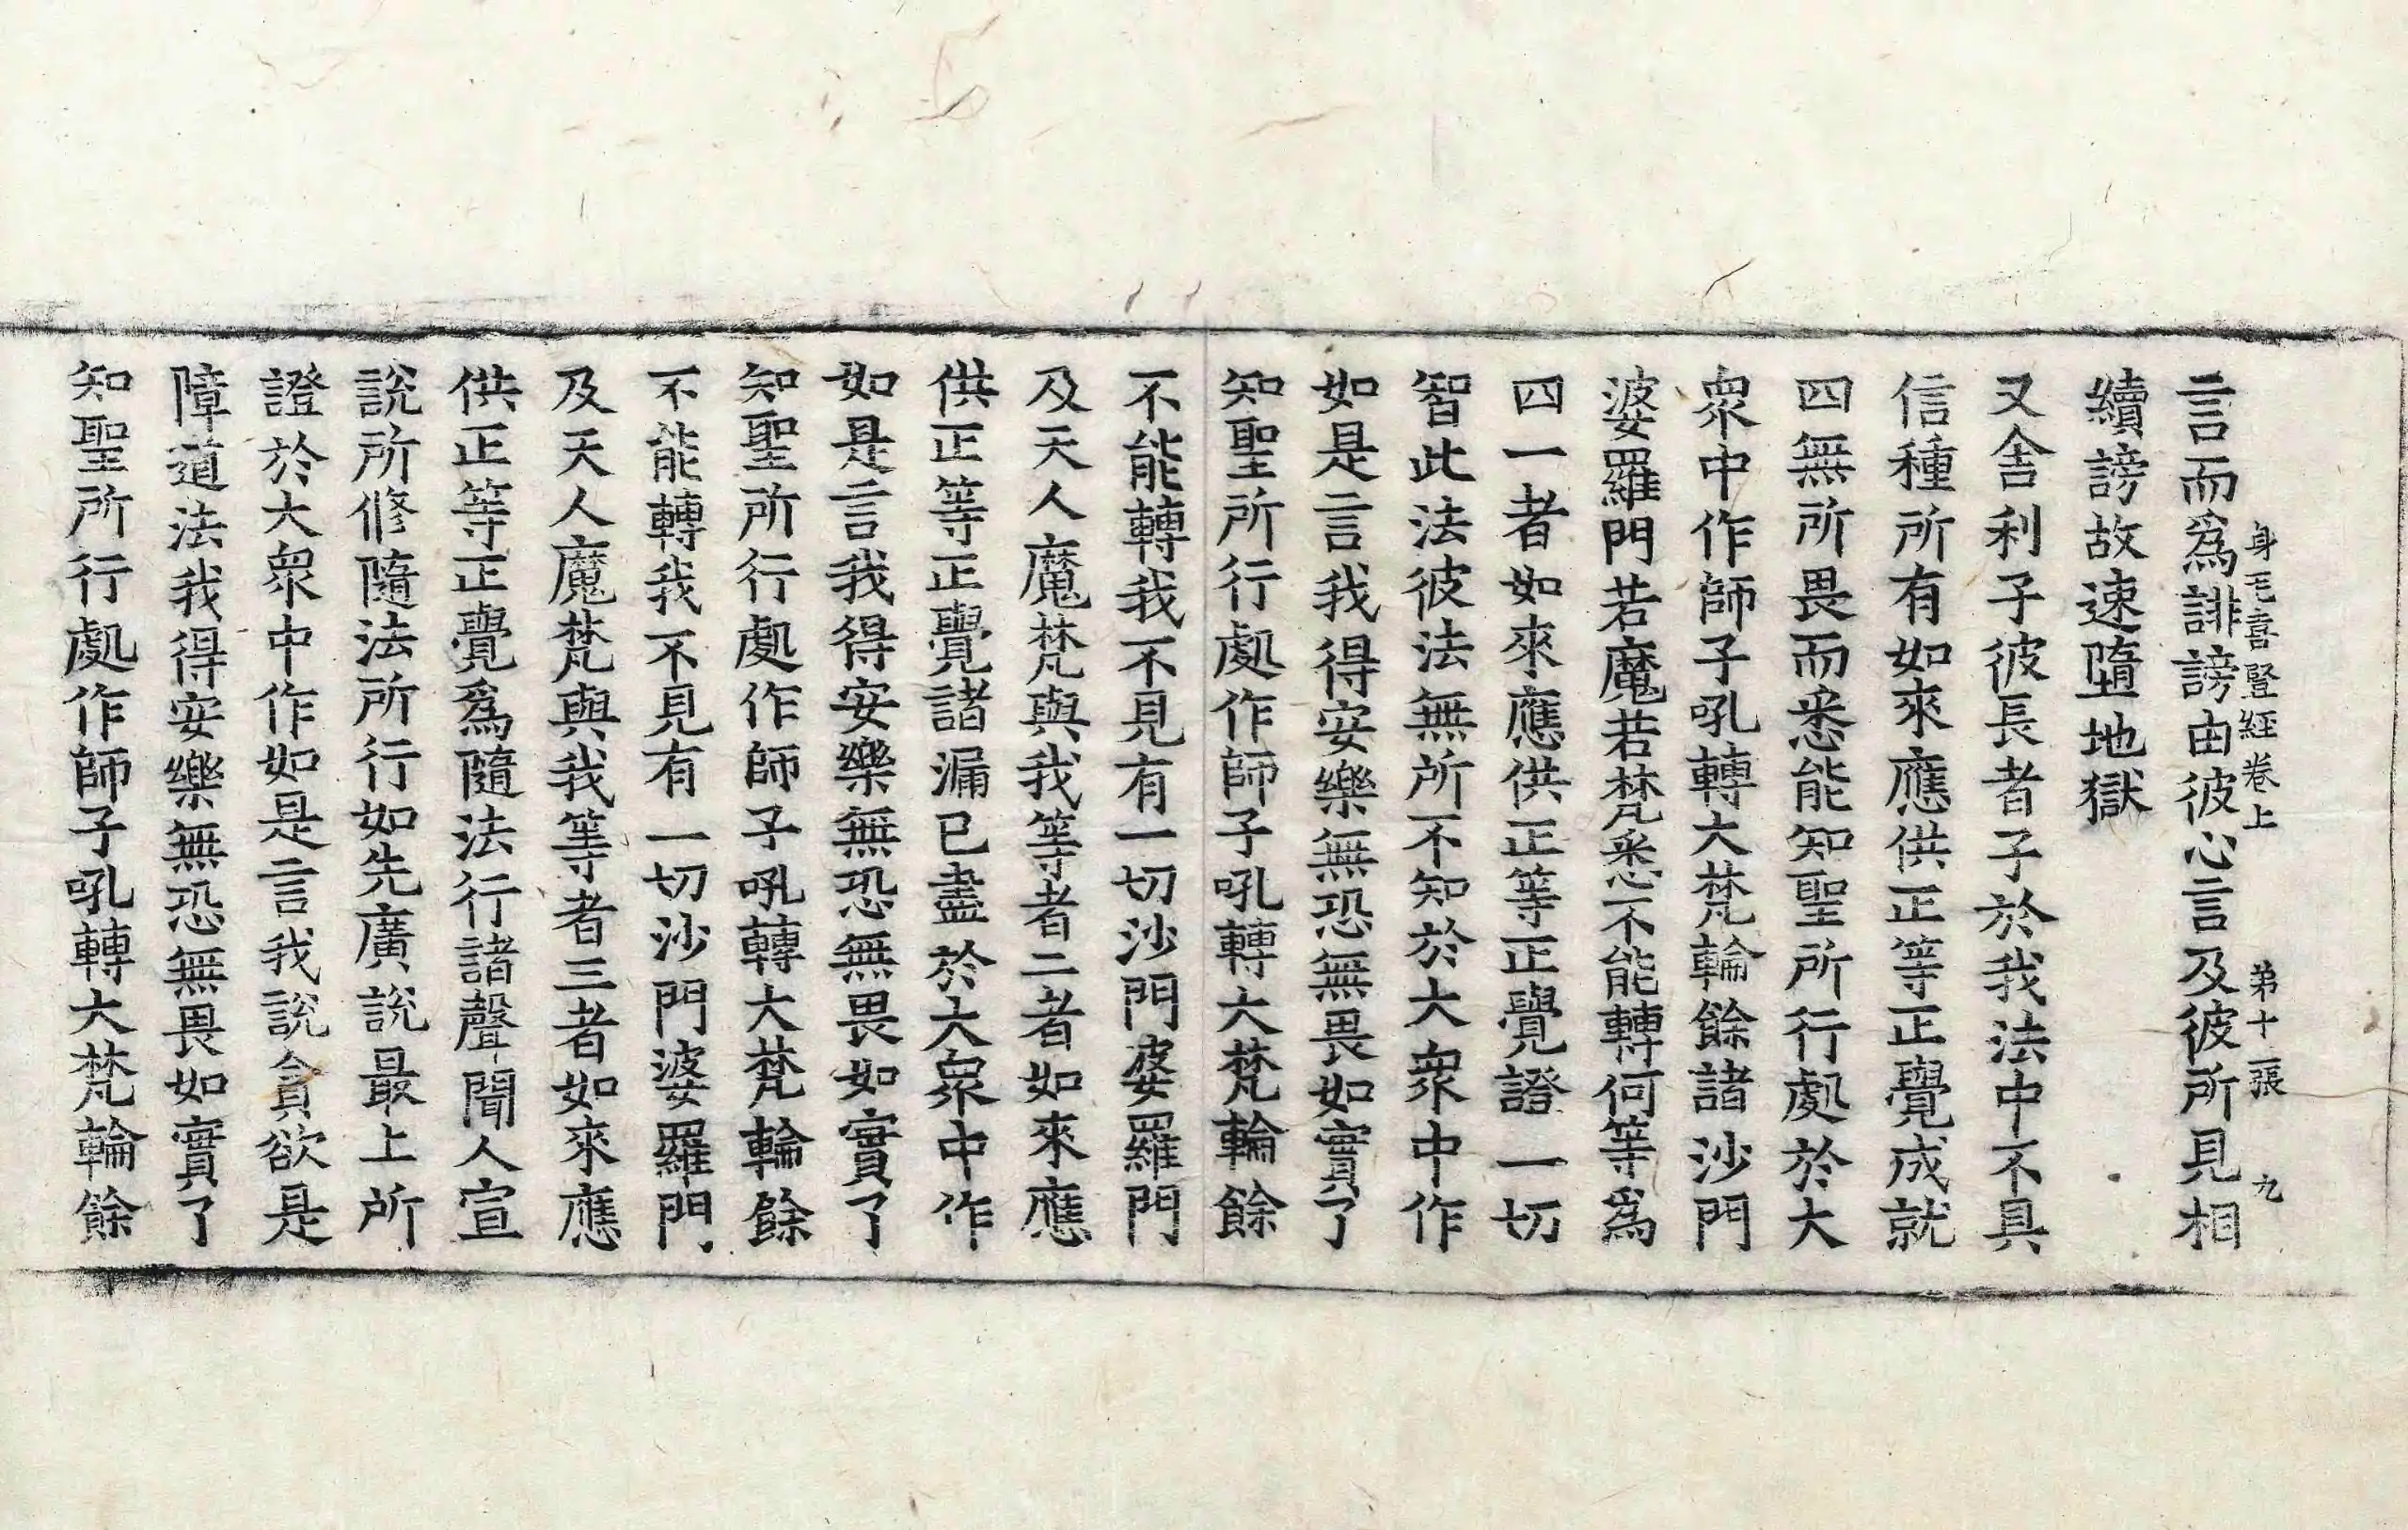 言而爲誹謗由彼心言及彼所見相
身毛喜豎経卷上 第十一張 九
續謗故速墮地獄
又舍利子彼長者子於我法中不具
信種所有如來應供正等正覺成就
四無所畏而悉能知聖所行處於大
衆中作師子吼轉大梵輪餘諸沙門
婆羅門若魔若梵悉不能轉何等爲
四一者如來應供正等正覺證一切
智此法彼法無所不知於大衆中作
如是言我得安樂無恐無畏如實了
知聖所行處作師子吼轉大梵輪餘
不能轉我不見有一切沙門婆羅門
及天人魔梵與我等者二者如來應
供正等正覺諸漏已盡於大衆中作
如是言我得安樂無恐無畏如實了
知聖所行處作師子吼轉大梵輪餘
不能轉我不見有一切沙門婆羅門
及天人魔梵與我等者三者如來應
供正等正覺爲隨法行諸聲聞人宣
說所修隨法所行如先廣說最上所
證於大衆中作如是言我說貪欲是
障道法我得安樂無恐無畏如實了
知聖所行處作師子吼轉大梵輪餘